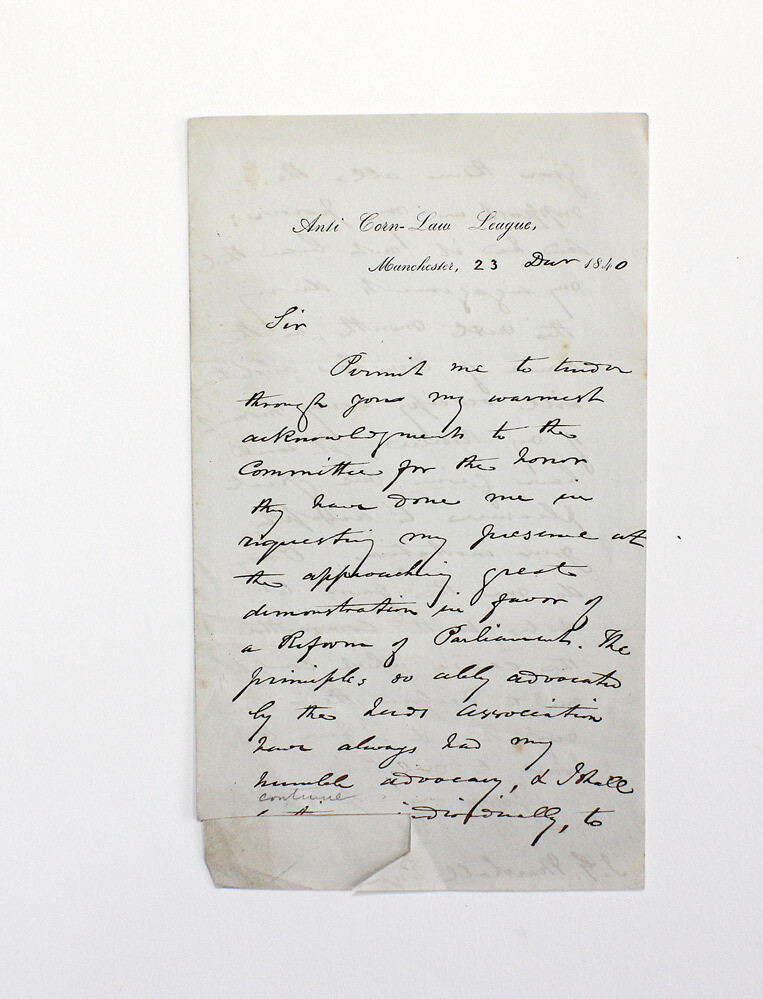 Anti Corn-Law League,
Manchester, 23 Decr 1840
Sir
Permit me to tender
through you my warmest
acknowledgments to the
Committee for the honor
they have done me in
requesting my presence at
the approaching great
demonstration in favor of
a Reform of Parliament. The
principles so ably advocated
by the Leeds Association
have always had my
humble advocacy, & I shall
continue
individually, to